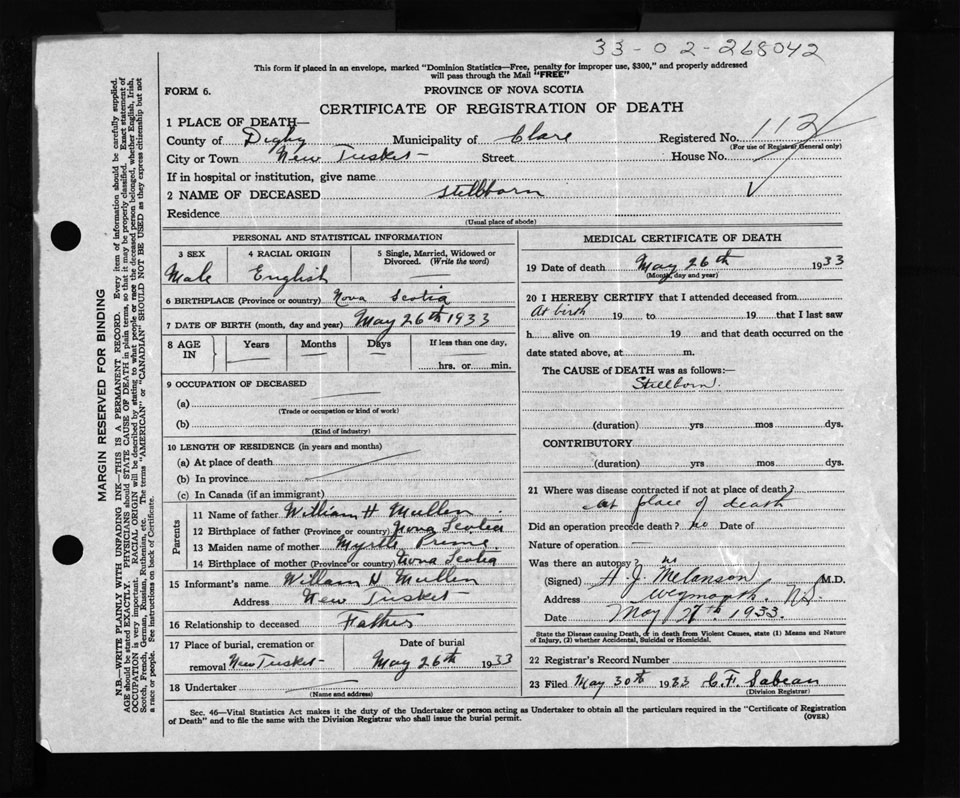 33-02-268042
This form if placed in an envelope, marked "Dominion Statistics—Free, penalty for improper use, $300," and properly addressed
will pass through the Mail "FREE"
FORM 6.
PROVINCE OF NOVA SCOTIA
CERTIFICATE OF REGISTRATION OF DEATH
1 PLACE OF DEATH—
County of Digby Municipality of Clare Registered No. 112
(For use of Registrar General only)
City or Town New Tusket Street House No.
If in hospital or institution, give name
2 NAME OF DECEASED Stillborn
Residence
(Usual place of abode)
PERSONAL AND STATISTICAL INFORMATION
3 SEX 4 RACIAL ORIGIN 5 Single, Married, Widowed or
Divorced. (Write the word)
Male English
6 BIRTHPLACE (Province or country) Nova Scotia
7 DATE OF BIRTH (month, day and year) May 26th 1933
8 AGE IN Years Months Days If less than one day,
hrs. or min.
9 OCCUPATION OF DECEASED
(a)
(Trade or occupation or kind of work)
(b)
(Kind of industry)
10 LENGTH OF RESIDENCE (in years and months)
(a) At place of death
(b) In province
(c) In Canada (if an immigrant)
Parents
11 Name of father William H Mullen
12 Birthplace of father (Province or country) Nova Scotia
13 Maiden name of mother Myrtle Prime
14 Birthplace of mother (Province or country) Nova Scotia
15 Informant's name William H Mullen
Address New Tusket
16 Relationship to deceased Father
17 Place of burial, cremation or Date of burial
removal New Tusket May 26th 1933
18 Undertaker
(Name and address)
MEDICAL CERTIFICATE OF DEATH
19 Date of death May 26th 1933
(Month, day and year)
20 I HEREBY CERTIFY that I attended deceased from
At birth 19 to 19 that I last saw
h alive on 19 and that death occurred on the
date stated above, at m.
The CAUSE of DEATH was as follows:—
Stillborn.
(duration) yrs mos dys.
CONTRIBUTORY
(duration) yrs mos dys.
21 Where was disease contracted if not at place of death?
At place of death
Did an operation precede death? no Date of
Nature of operation —
Was there an autopsy? no
(Signed) A. J. Melanson M.D.
Address Weymouth N.S.
Date May 27th 1933.
State the Disease causing Death, or in death from Violent Causes, state (1) Means and Nature
of Injury, (2) whether Accidental, Suicidal or Homicidal.
22 Registrar's Record Number
23 Filed May 30th 1933 C. F. Sabean
(Division Registrar)
Sec. 46—Vital Statistics Act makes it the duty of the Undertaker or person acting as Undertaker to obtain all the particulars required in the "Certificate of Registration
of Death" and to file the same with the Division Registrar who shall issue the burial permit.
(OVER)
MARGIN RESERVED FOR BINDING
N.B.—WRITE PLAINLY WITH UNFADING INK—THIS IS A PERMANENT RECORD. Every item of information should be carefully supplied.
AGE should be stated EXACTLY. PHYSICIANS should STATE CAUSE OF DEATH in plain terms, so that it may be properly classified. Exact statement of
OCCUPATION is very important. RACIAL ORIGIN will be described by stating to what people or race the deceased person belonged, whether English, Irish,
Scotch, French, German, Russian, Ruthenian, etc. The terms "AMERICAN" or "CANADIAN" SHOULD NOT BE USED as they express citizenship but not
a race or people. See instructions on back of Certificate.